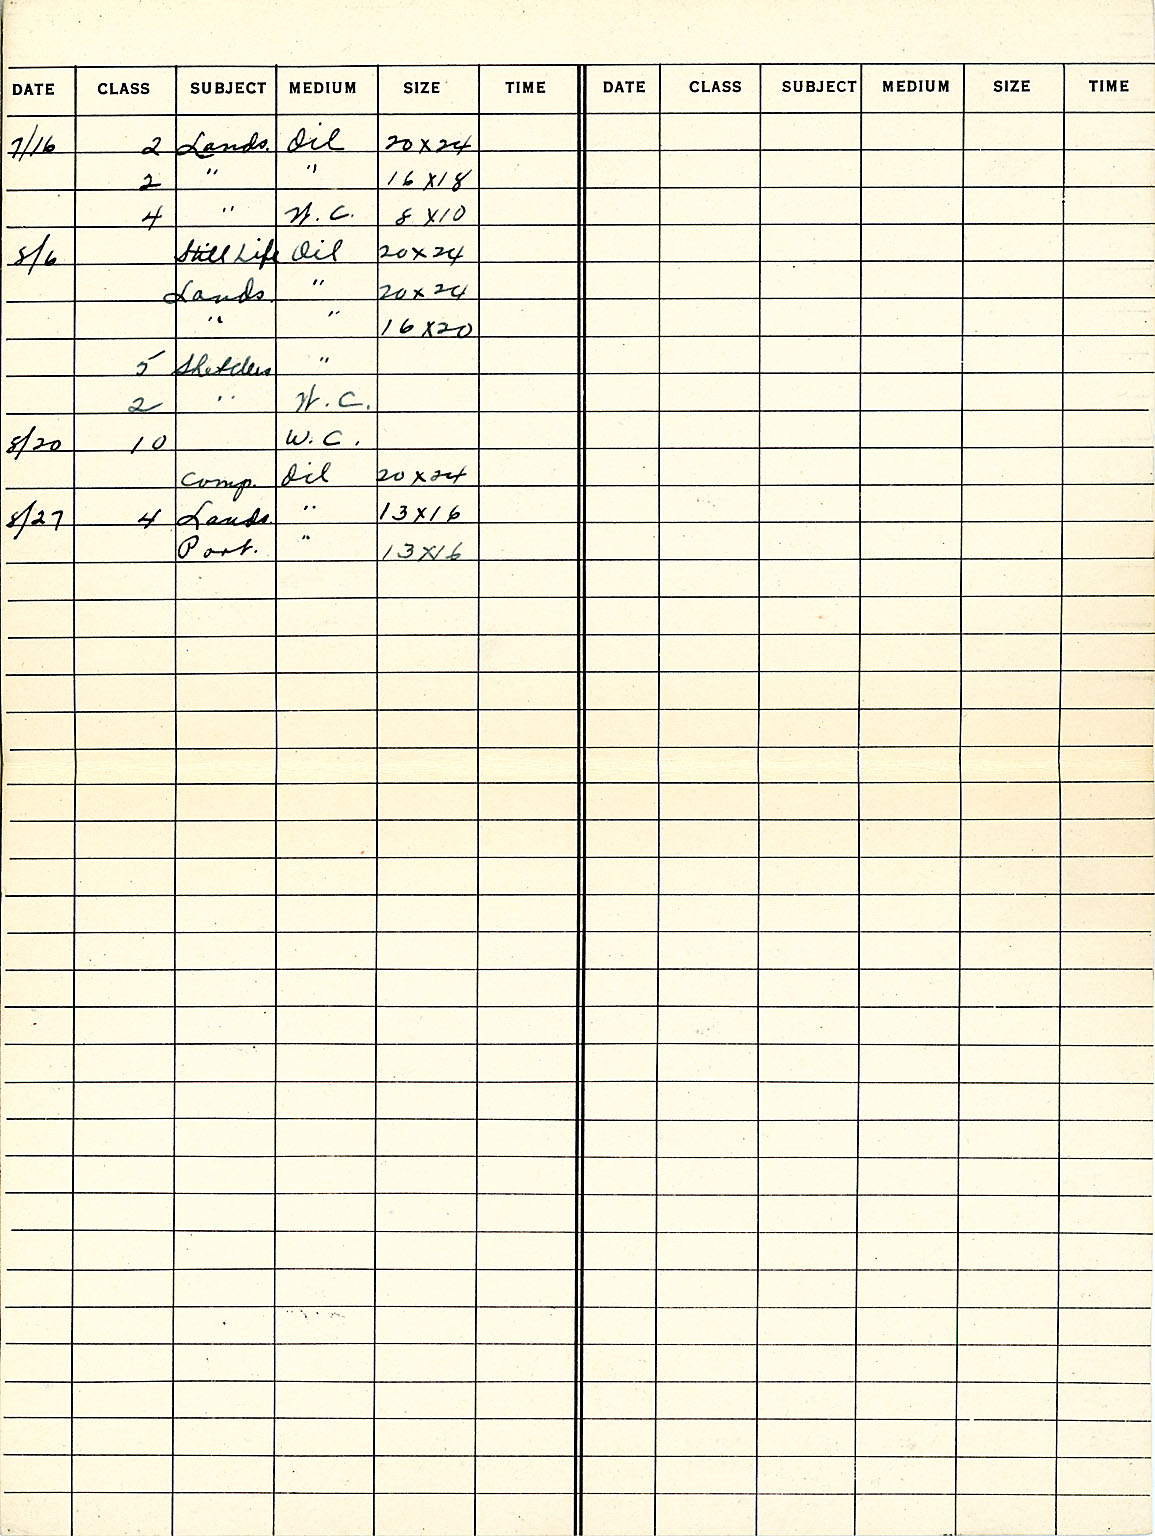 DATE CLASS SUBJECT MEDIUM SIZE TIME DATE CLASS SUBJECT MEDIUM SIZE TIME
7/16 2 Lands. Oil 20x24
2 " " 16x18
4 " W.C. 8x10
8/6 Still Life Oil 20x24
Lands. " 20x24
" " 16x20
5 Sketches "
2 " W.C.
8/20 10 W.C.
Comp. Oil 20x24
8/27 4 Lands. " 13x16
Port. " 13x16